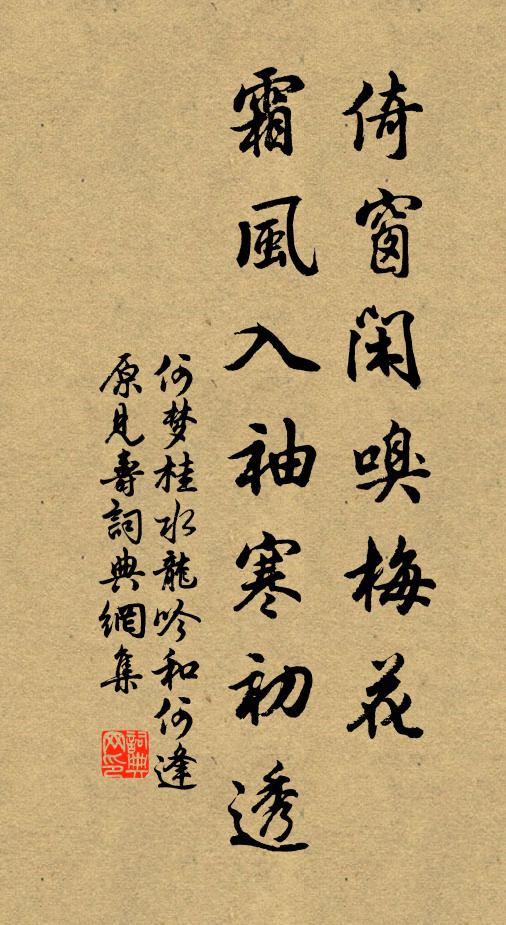 倚窗闲嗅梅花
霜風入袖寒初透
何梦桂水龍吟和何逢
原見壽詞典網集
詞典网印